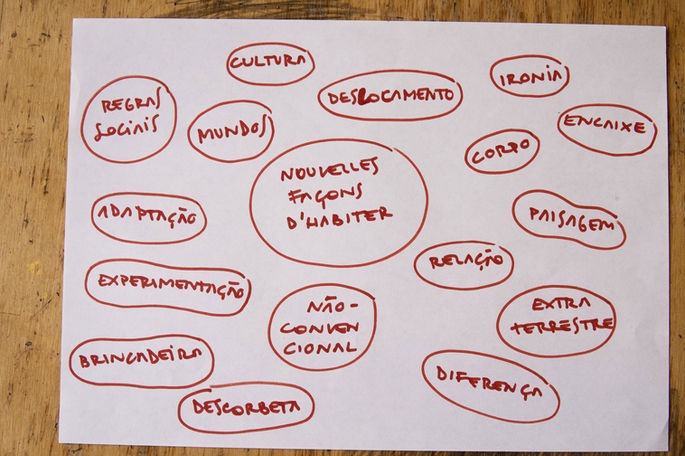 CULTURA
IRONIA
DESLOCAMENTO
REGRAS
SOCIAIS
MUNDOS
ENCAIXE
CORPO
NOUVELLES
FAÇONS
D'HABITER
ADAPTAÇÃO
PAISAGEM
RELAÇÃO
EXPERIMENTAÇÃO
NÃO-
CONVEN
CIONAL
EXTRA
TERRESTRE
BRINCADEIRA
DIFERENÇA
DESCORBETA